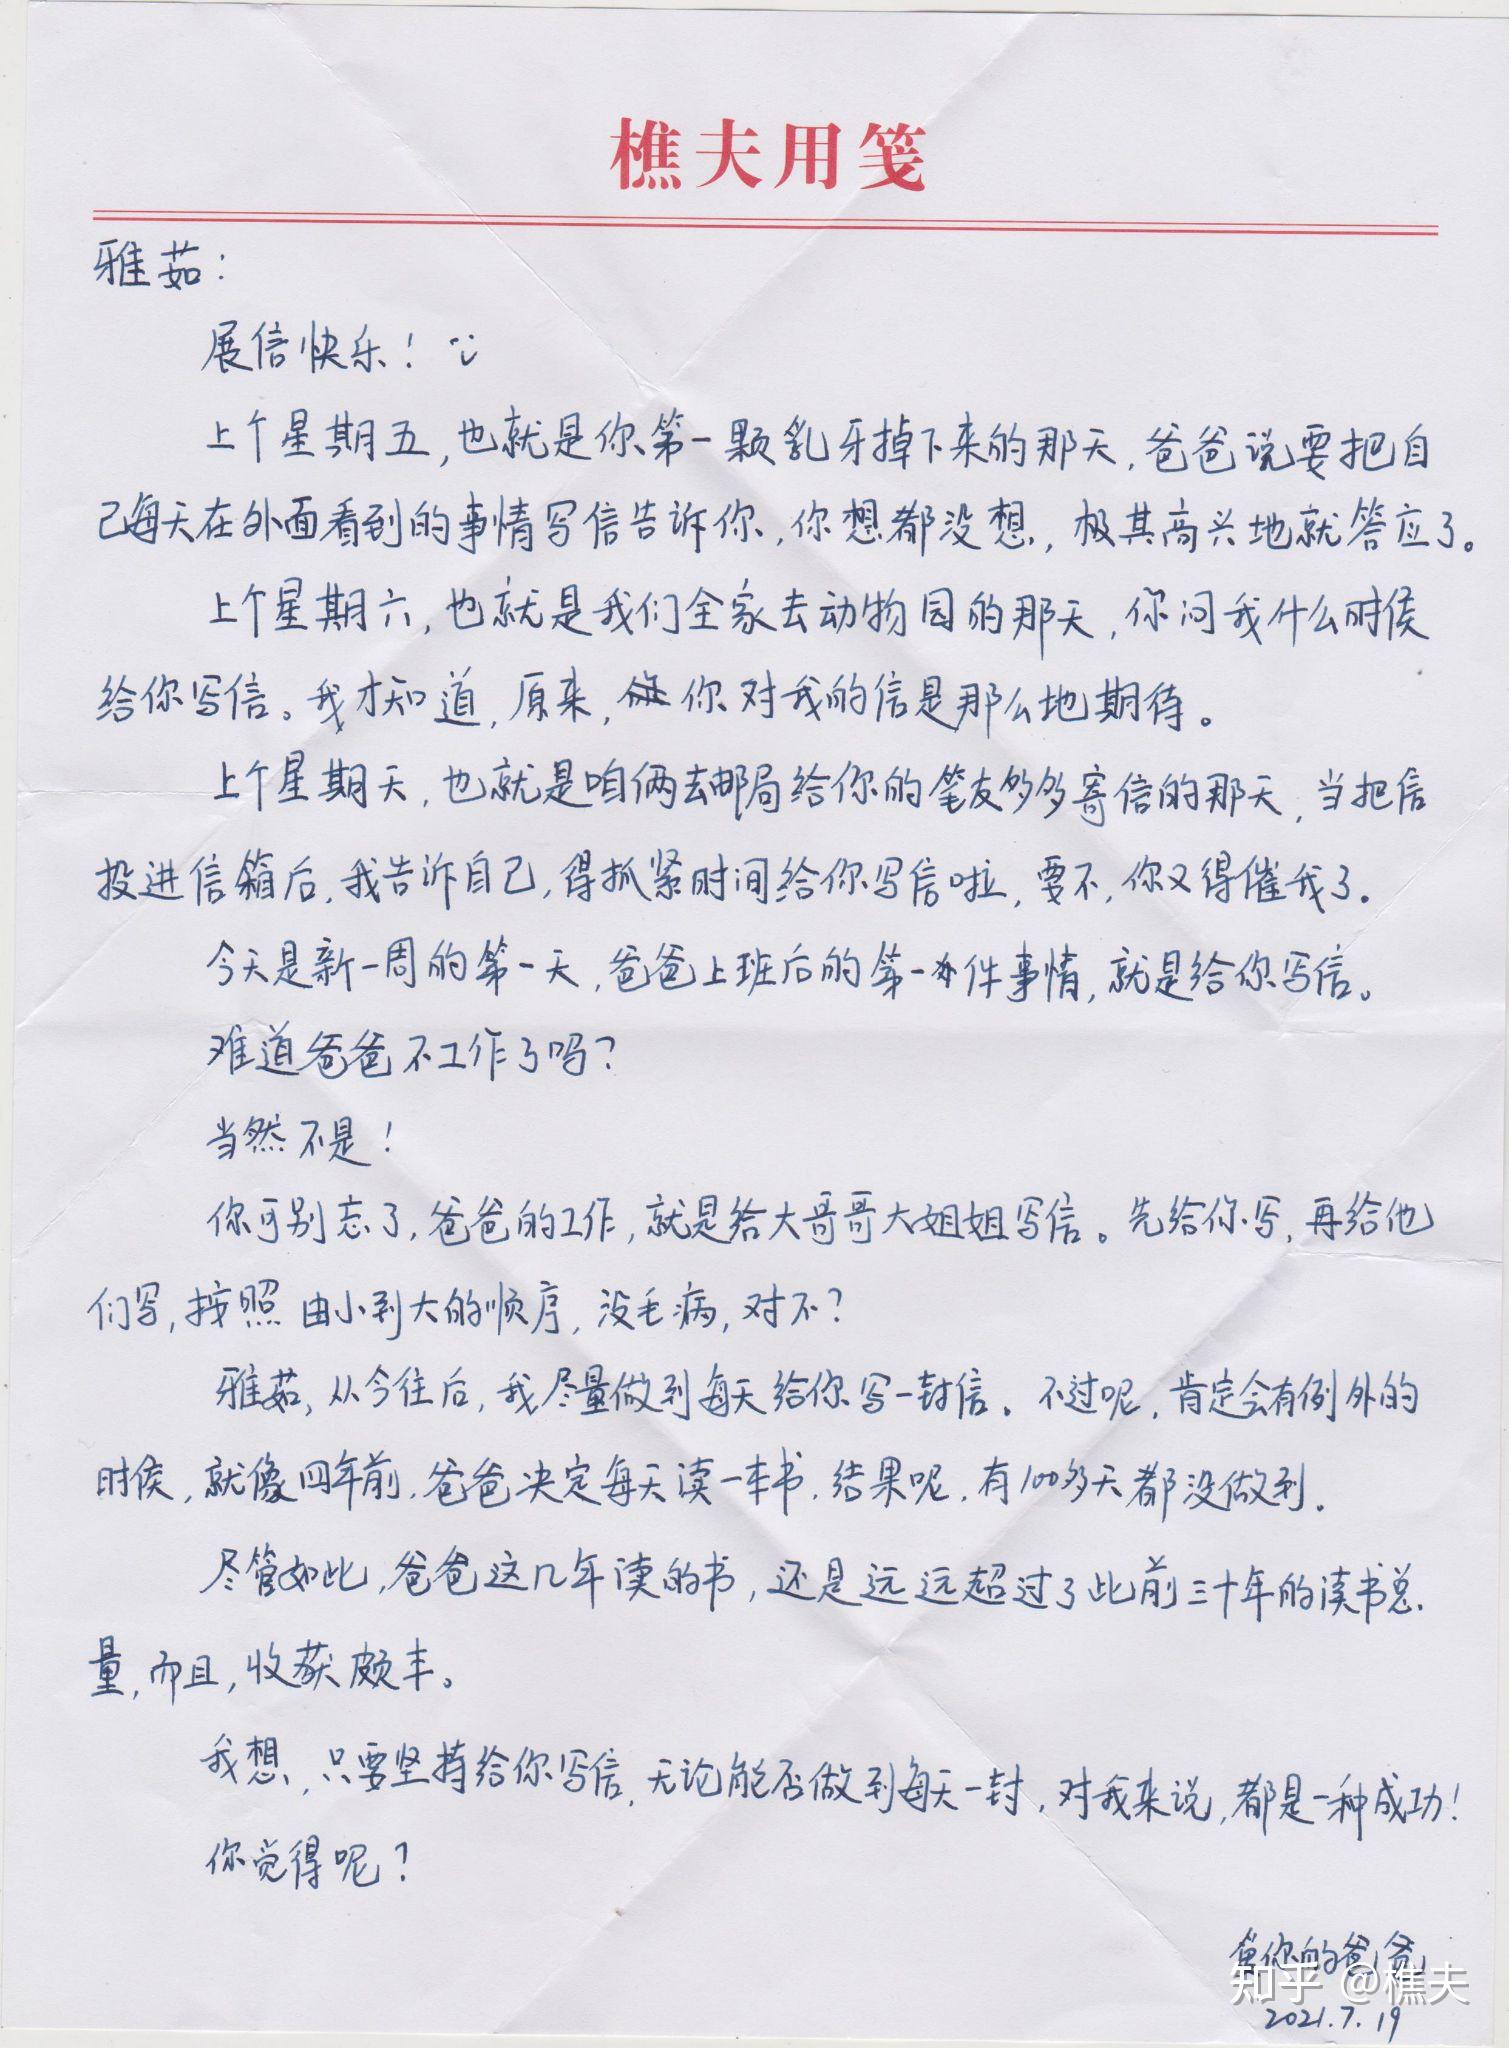 樵夫用笺
雅茹：
展信快乐！
上个星期五，也就是你第一颗乳牙掉下来的那天，爸爸说要把自
己每天在外面看到的事情写信告诉你，你想都没想，极其高兴地就答应了。
上个星期六，也就是我们全家去动物园的那天，你问我什么时侯
给你写信。我才知道，原来，你对我的信是那么地期待。
上个星期天，也就是咱俩去邮局给你的笔友多多寄信的那天，当把信
投进信箱后，我告诉自己，得抓紧时间给你写信啦，要不，你又得催我了。
今天是新一周的第一天，爸爸上班后的第一件事情，就是给你写信。
难道爸爸不工作了吗？
当然不是！
你可别忘了，爸爸的工作，就是给大哥哥大姐姐写信。先给你写，再给他
们写，按照由小到大的顺序，没毛病，对不？
雅茹，从今往后，我尽量做到每天给你写一封信。不过呢，肯定会有例外的
时侯，就像四年前，爸爸决定每天读一本书，结果呢，有100多天都没做到。
尽管如此，爸爸这几年读的书，还是远远超过了此前三十年的读书总
量，而且，收获颇丰。
我想，只要坚持给你写信，无论能否做到每天一封，对我来说，都是一种成功！
你觉得呢？
你的爸爸
知乎 @樵夫
2021.7.19